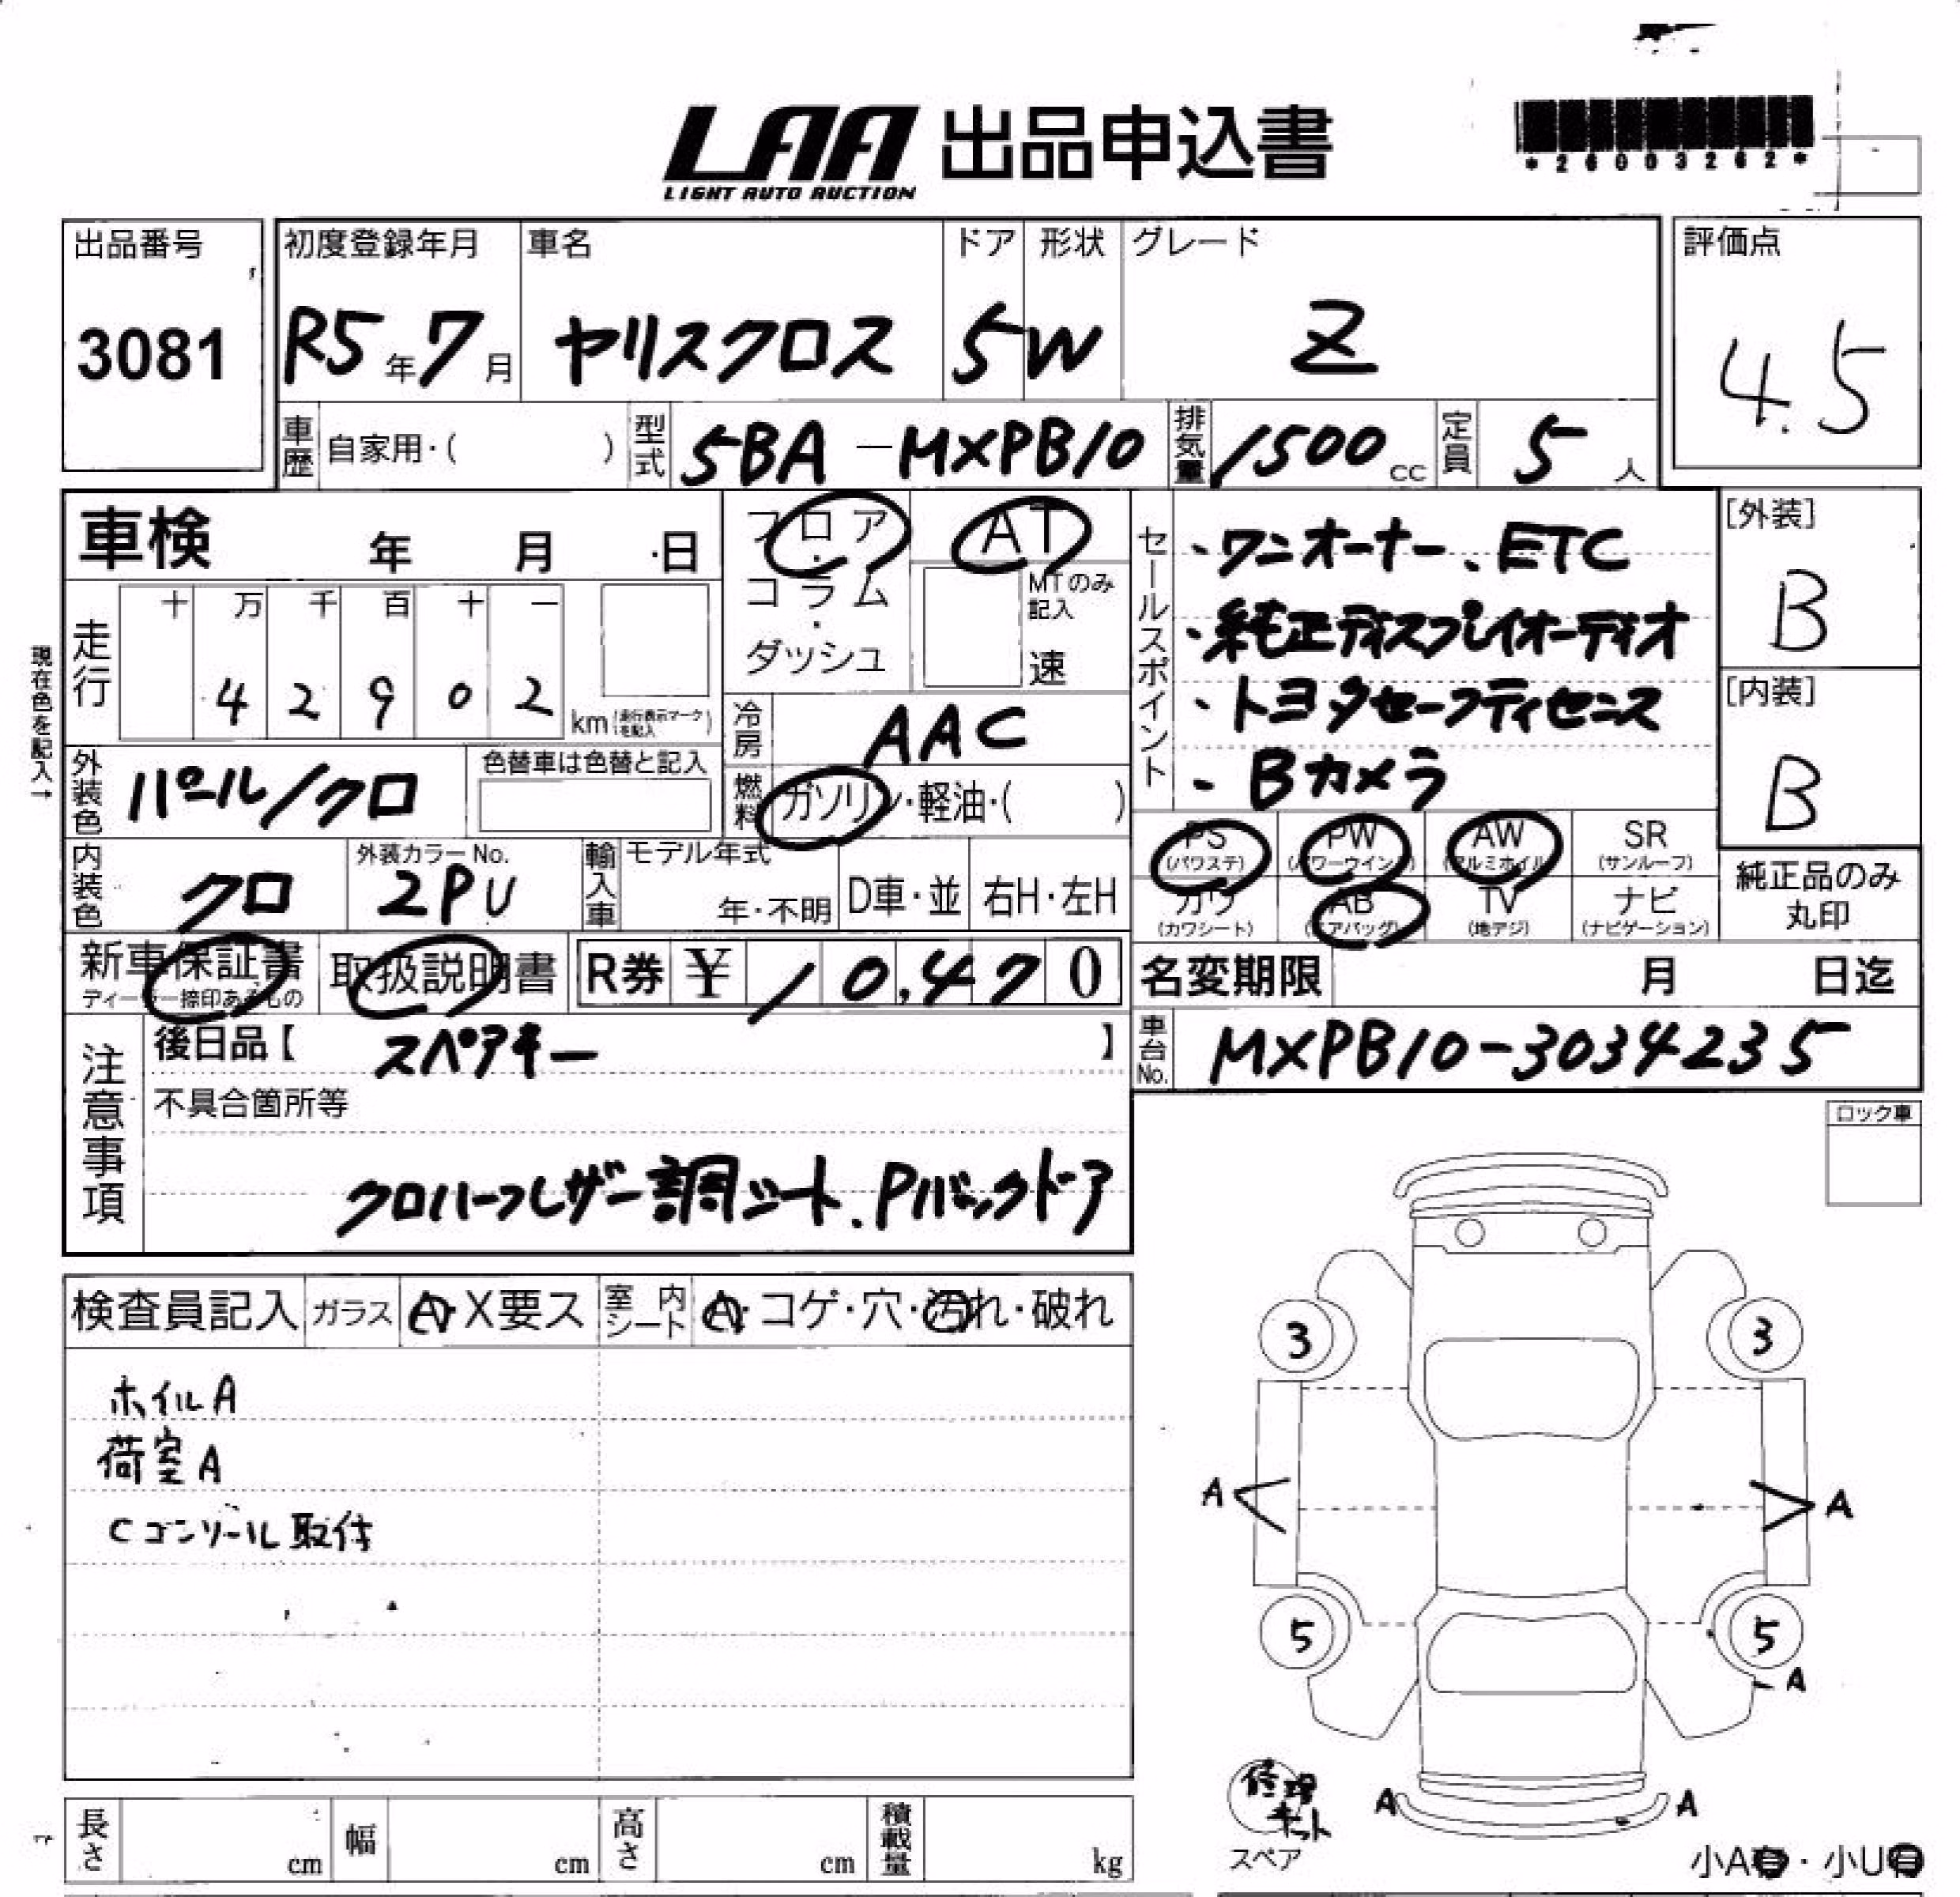 LAA 出品申込書
LIGHT AUTO AUCTION
*26003262*
出品番号 初度登録年月 車名 ドア 形状 グレード 評価点
3081 R5年7月 ヤリスクロス 5 W Z 4.5
車歴 自家用・( ) 型式 5BA-MXPB10 排気量 1500cc 定員 5人
車検 年 月 日
フロア・コラム・ダッシュ
AT
MTのみ記入
速
セールスポイント
・ワンオーナー、ETC
・純正ディスプレイオーディオ
・トヨタセーフティセンス
・Bカメラ
[外装]
B
[内装]
B
現在色を記入→
走行 十 万 千 百 十 一
4 2 9 0 2 km(走行表示マークを記入)
冷房 AAC
外装色 パール/クロ 色替車は色替と記入
燃料 ガソリン・軽油・( )
内装色 クロ 外装カラーNo. 2PU
輸入車 モデル年式 年・不明 D車・並 右H・左H
PS(パワステ) PW(パワーウインド) AW(アルミホイル) SR(サンルーフ)
カワ(カワシート) AB(エアバッグ) TV(地デジ) ナビ(ナビゲーション)
純正品のみ丸印
新車保証書 ディーラー捺印あるもの
取扱説明書 R券 ¥ 10,470
名変期限 月 日迄
車台No. MXPB10-3034235
注意事項
後日品【 スペアキー 】
不具合箇所等
クロハーフレザー調シート、Pバックドア
ロック車
検査員記入 ガラス A・X要ス 室内シート A・コゲ・穴・汚れ・破れ
ホイルA
荷室A
Cコンソール取付
3 3
A A
5 5
A
修理キット
スペア
A A
小A有・小U有
長さ cm 幅 cm 高さ cm 積載量 kg